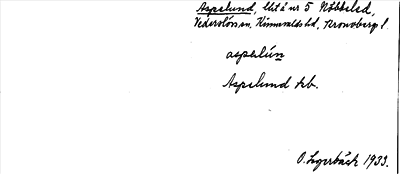 Aspelund, lht å nr 5 Nöbbeled,
Vederslövs sn, Kinnevalds hd, Kronobergs l.
aspelún
Aspelund trb.
O. Lagerbäck 1933.